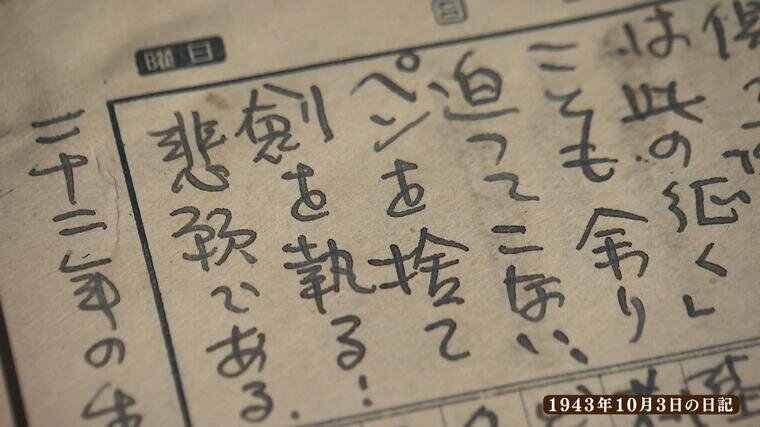 日
曜日
は此の征く」
ことも余り
迫ってこない、
ペンを捨て
剣を執る！
悲願である.
二十二年の
1943年10月3日の日記